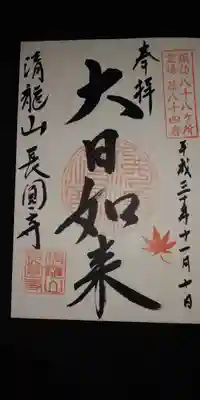 諏訪八十八ヶ所
霊場 第八十四番
平成三十年十一月十日
奉拝
大日如来
清龍山 長圓寺